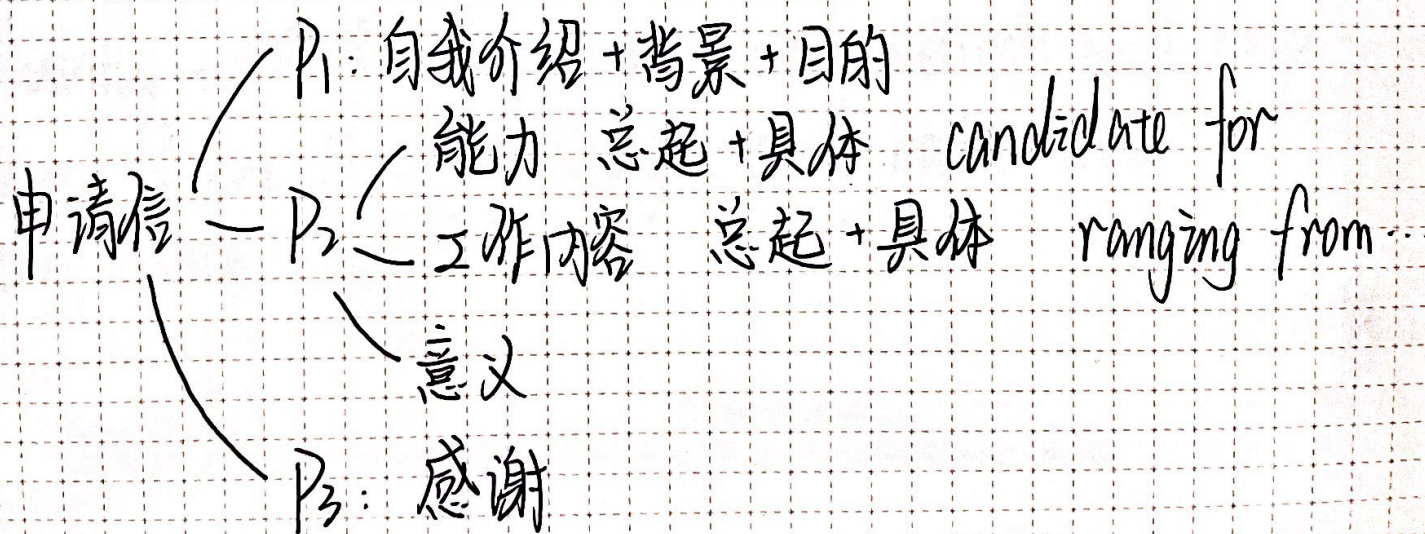 P1: 自我介绍+背景+目的
能力 总起+具体 candidate for
申请信 P2 工作内容 总起+具体 ranging from...
意义
P3: 感谢